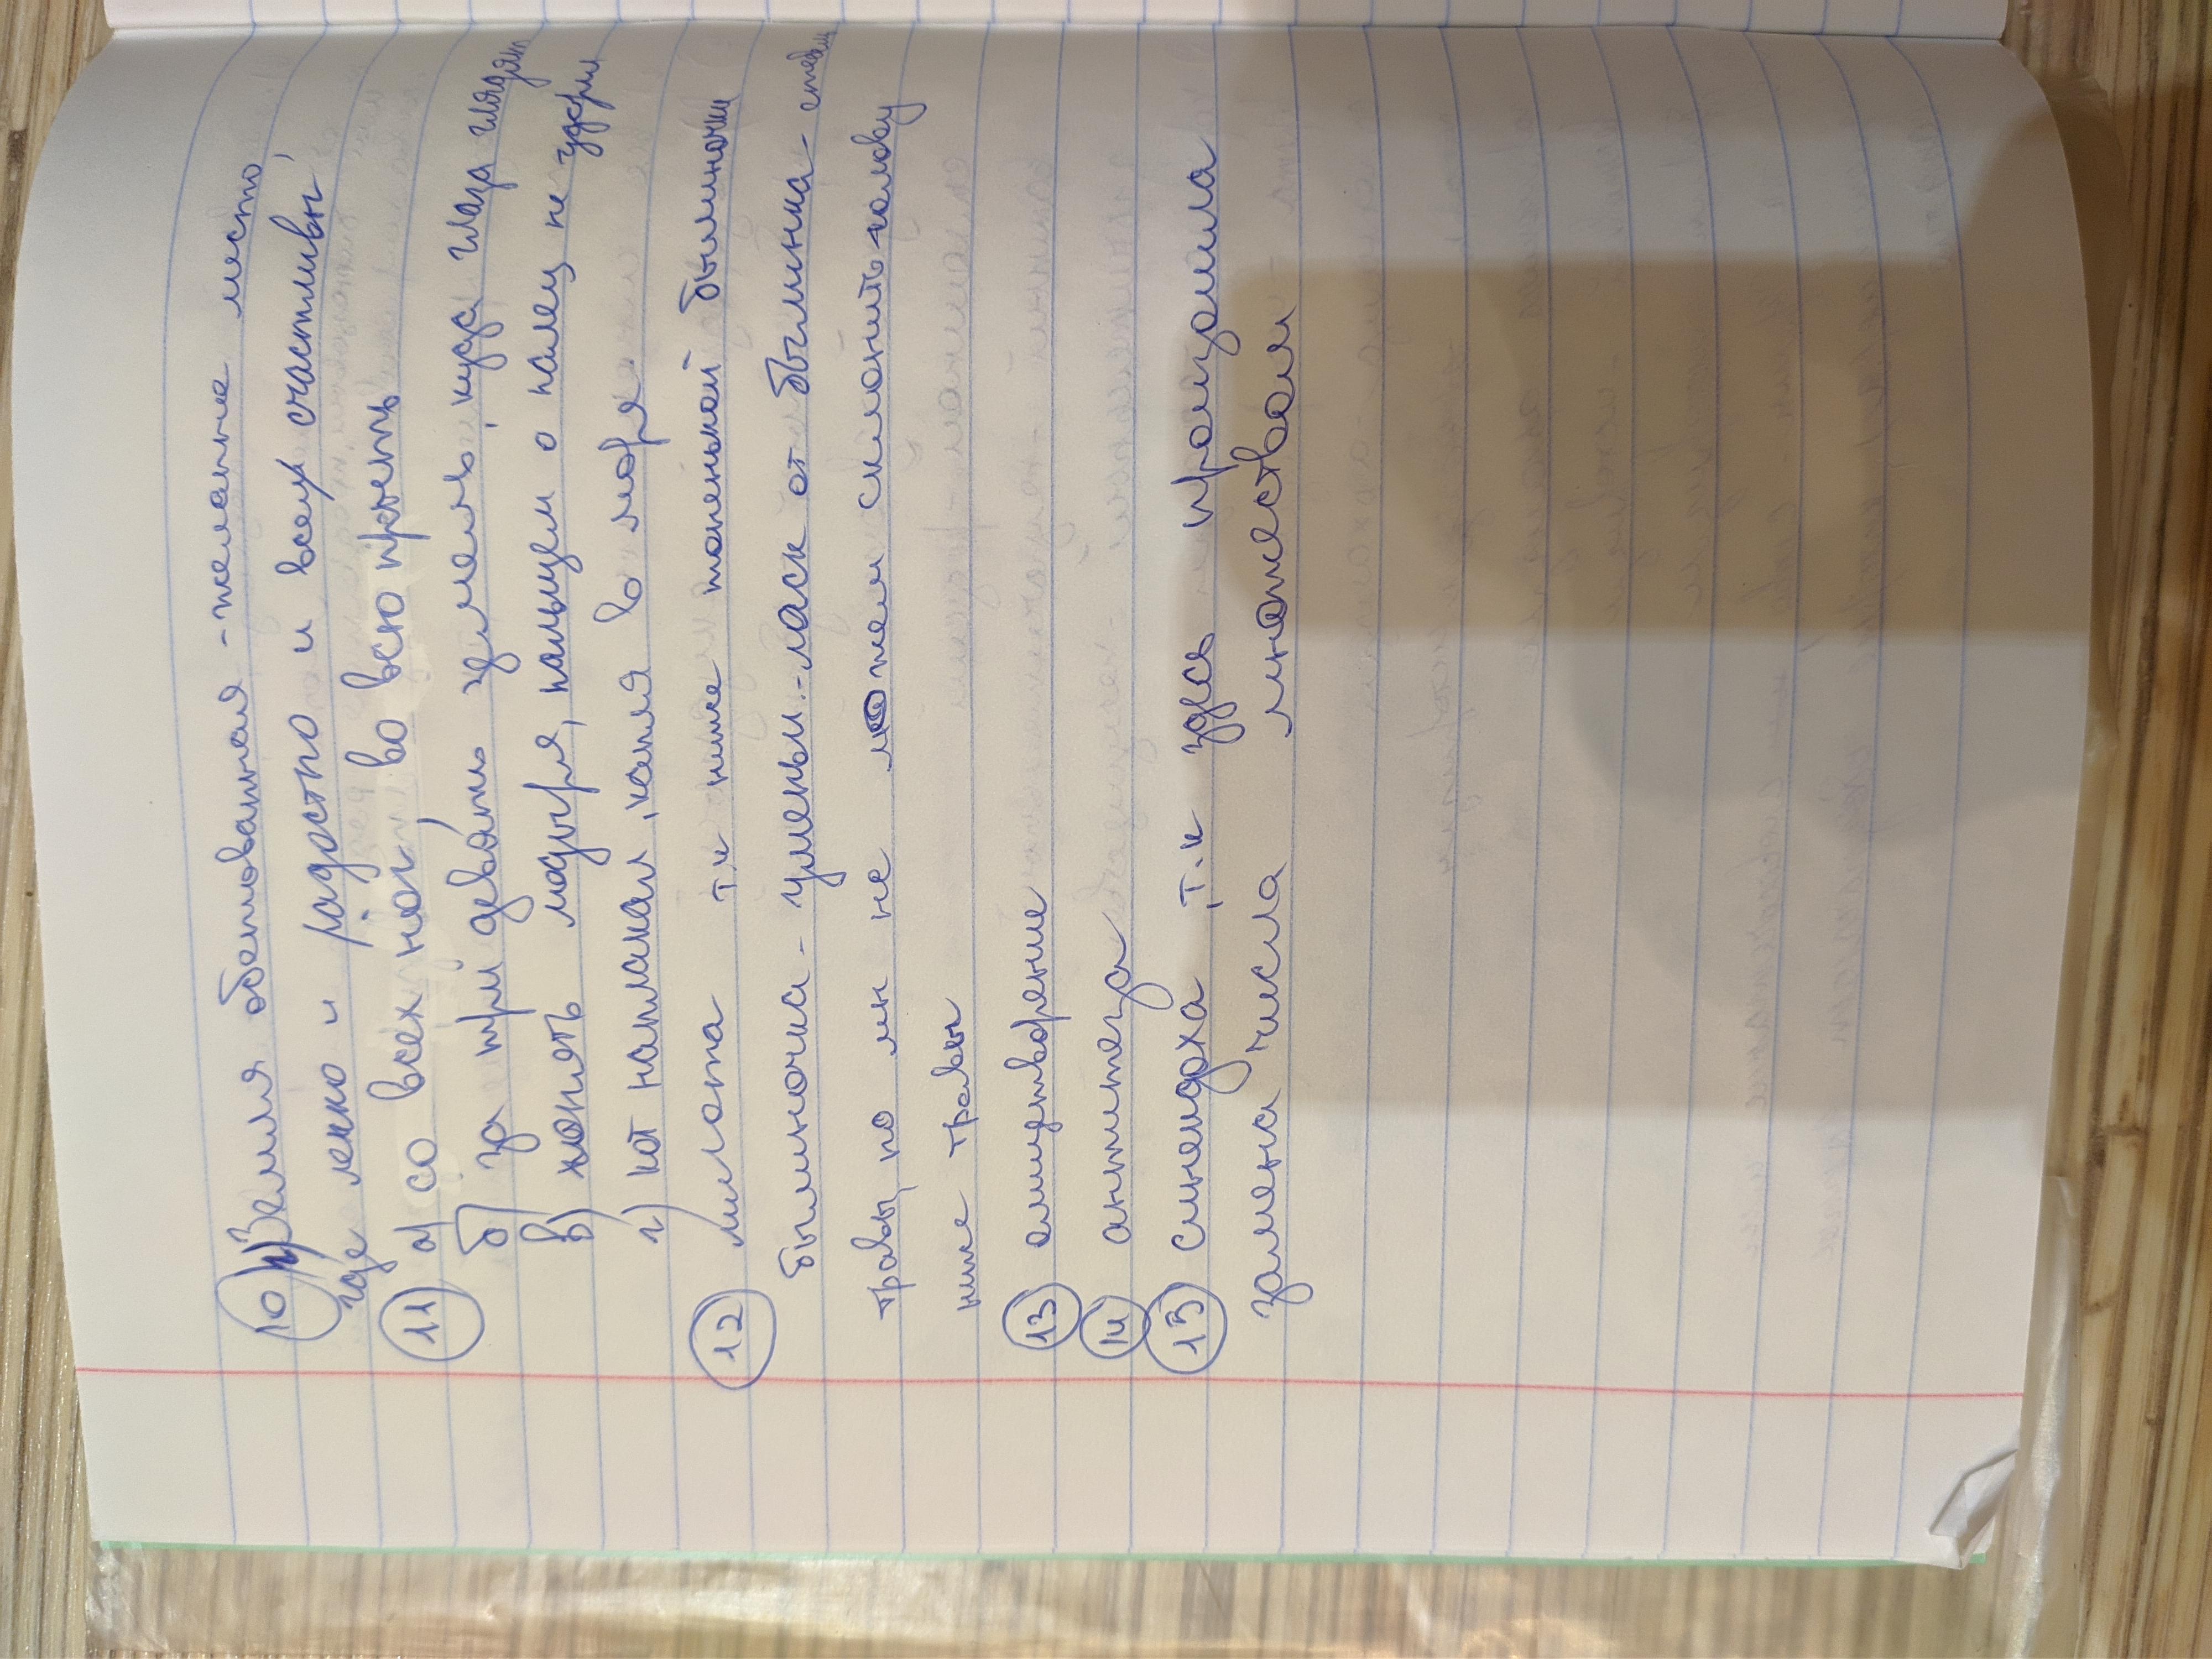 10 Земля обетованная - желание место,
где легко и радостно и всех счастливы
11 а) со всех ног, во всю прыть
б) за три девять земель, куда глаза глядят
в) гонять лодыря, пальцем о палец не ударил
г) кот наплакал, капля в море.
12 литота т.к ниже тоненькой былиночки
былиночка - уменьш.-ласк от былинка - стебель
травы, но мн не можем склонить голову
ниже травы
13 олицетворение
14 антитеза
15 синекдоха, т.к здесь произошла
замена числа множеством